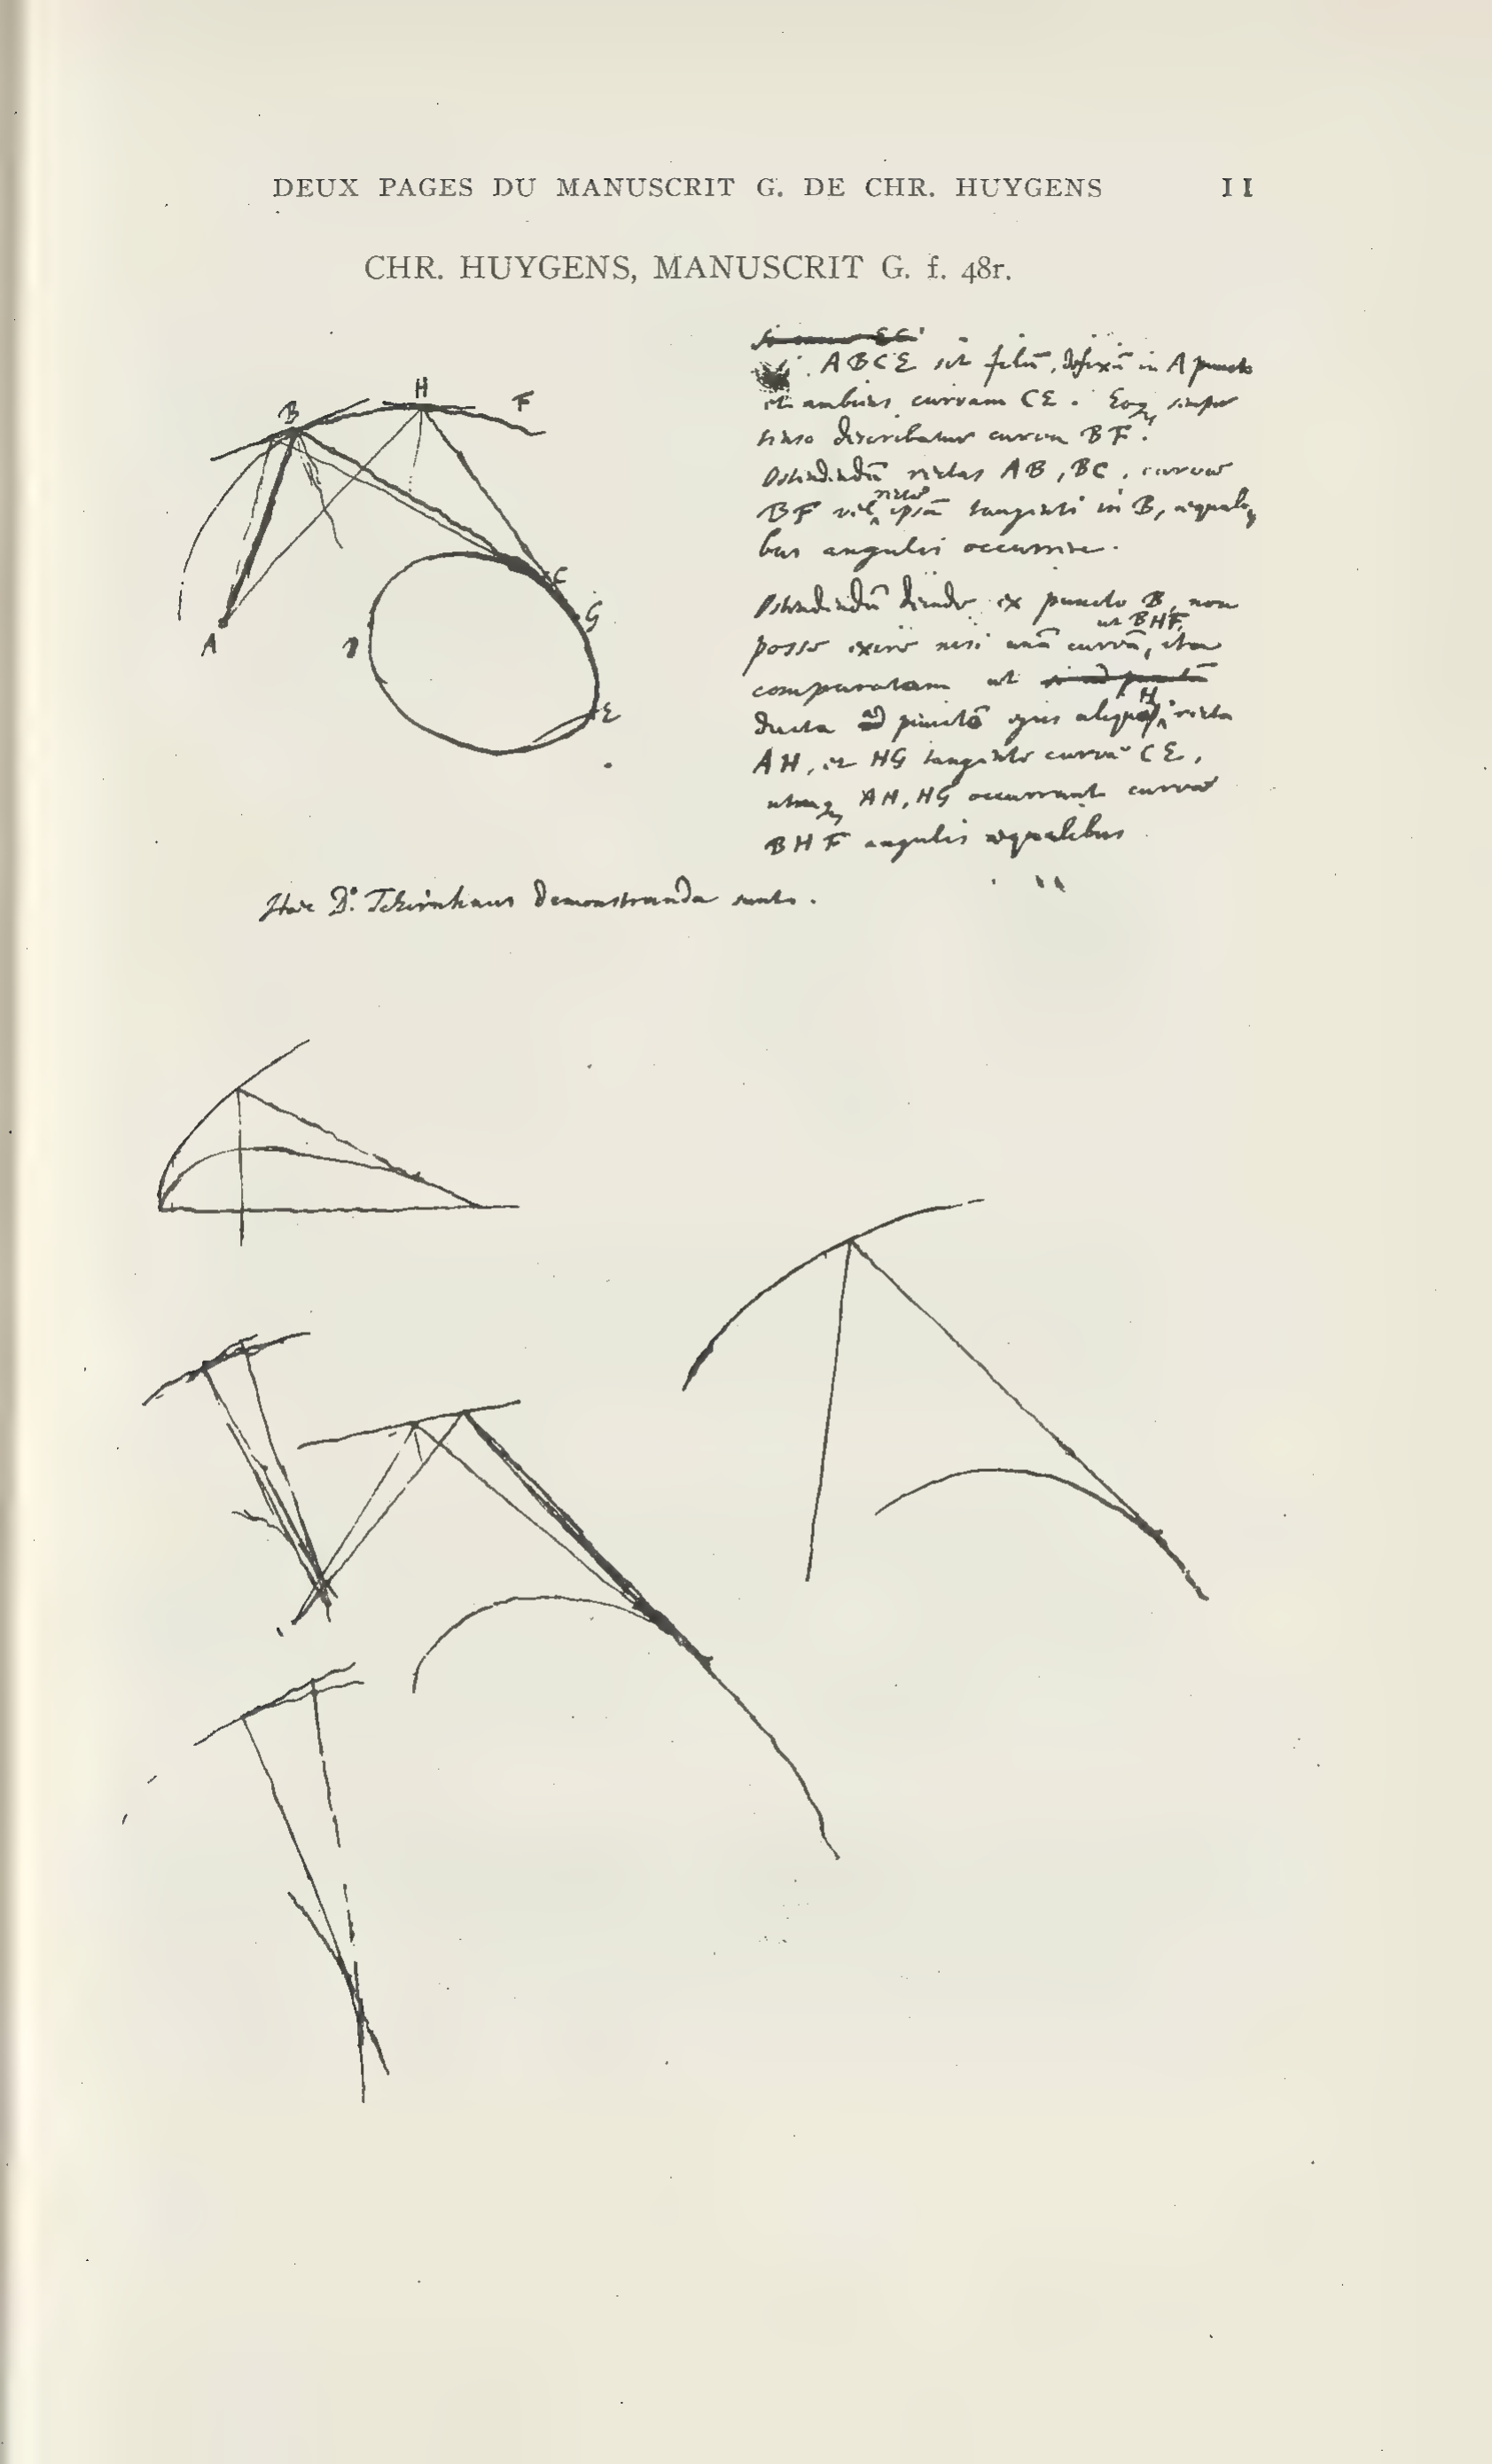 DEUX PAGES DU MANUSCRIT G. DE CHR. HUYGENS 11
CHR. HUYGENS, MANUSCRIT G. f. 48r.
H
B
F
C
G
A
D
E
ABCE sit filū, defixū in A puncto
et ambiens curvam CE. Eoq semper
tenso describatur curva BF.
Ostendendū rectas AB, BC, curvae
BF vel rectae ipsā tangenti in B, aequali
bus angulis occurrere.
Ostendendū deinde ex puncto B, non
posse exire nisi unā curvā, ut BHF, ita
comparatam ut
ducta ad punctū ejus aliquod H, recta
AH, et HG tangente curvā CE,
utraq AH, HG occurrant curvae
BHF angulis aequalibus
Haec D. Tchirnhaus demonstranda sunt.